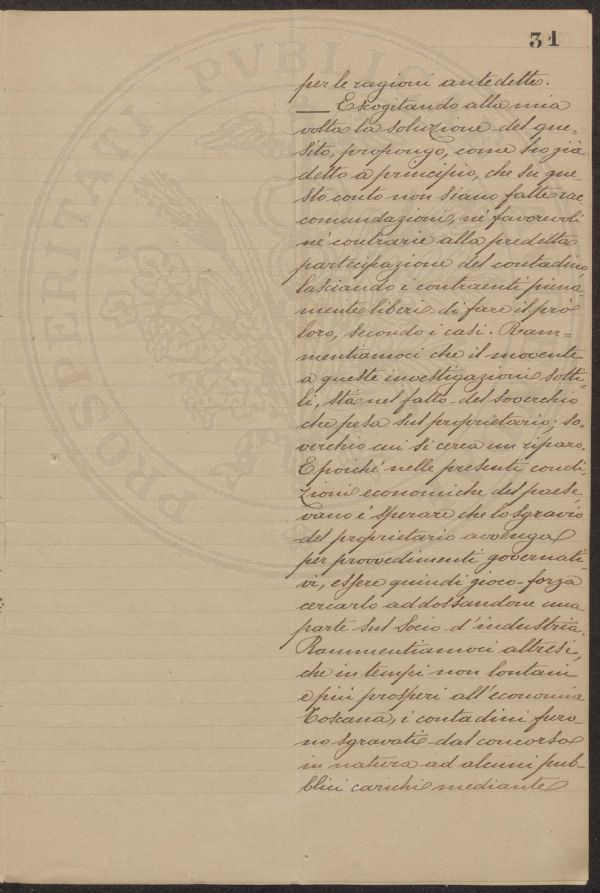 31
per le ragioni antedette.
— Escogitando alla mia
volta la soluzione del que-
sito, propongo, come ho già
detto a principio, che su que
sto conto non siano fatte rac
comandazioni, nè favorevoli
nè contrarie alla predetta
partecipazione del contadino,
lasciando i contraenti piena-
mente liberi di fare il prò
loro, secondo i casi. Ram-
mentiamoci che il movente
a queste investigazioni sotti-
li, sta nel fatto del soverchio
che pesa sul proprietario; so-
verchio cui si cerca un riparo.
E poiché nelle presenti condi-
zioni economiche del paese,
vano è sperare che lo sgravio
del proprietario avvenga
per provvedimenti governati-
vi, essere quindi gioco-forza
cercarlo addossandone una
parte sul Socio d'industria.
Rammentiamoci altresì,
che in tempi non lontani
e più prosperi all'economia
Toscana, i contadini furo
no sgravati dal concorso
in natura ad alcuni pub-
blici carichi mediante
PROSPERITATI PVBLIC